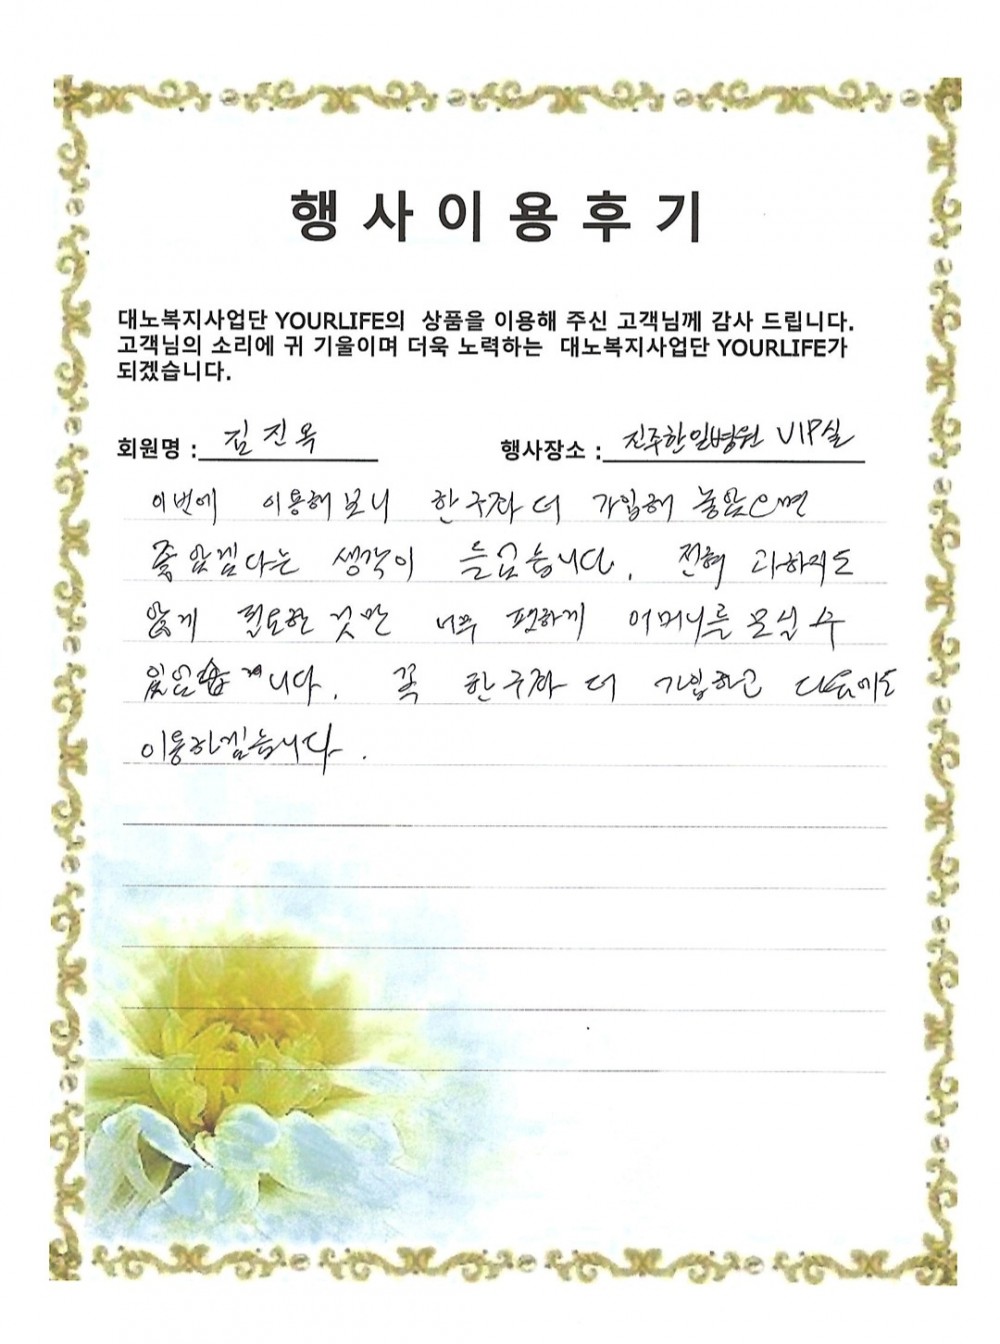 행사이용후기
대노복지사업단 YOURLIFE의 상품을 이용해 주신 고객님께 감사 드립니다.
고객님의 소리에 귀 기울이며 더욱 노력하는 대노복지사업단 YOURLIFE가
되겠습니다.
회원명 : 김진옥 행사장소 : 진주한일병원 VIP실
이번에 이용해보니 한구좌 더 가입해 놓았으면
좋았겠다는 생각이 들었습니다. 전혀 과하지도
않게 필요한 것만 너무 편하게 어머니를 모실 수
있었습니다. 꼭 한구좌 더 가입하고 다음에도
이용하겠습니다.